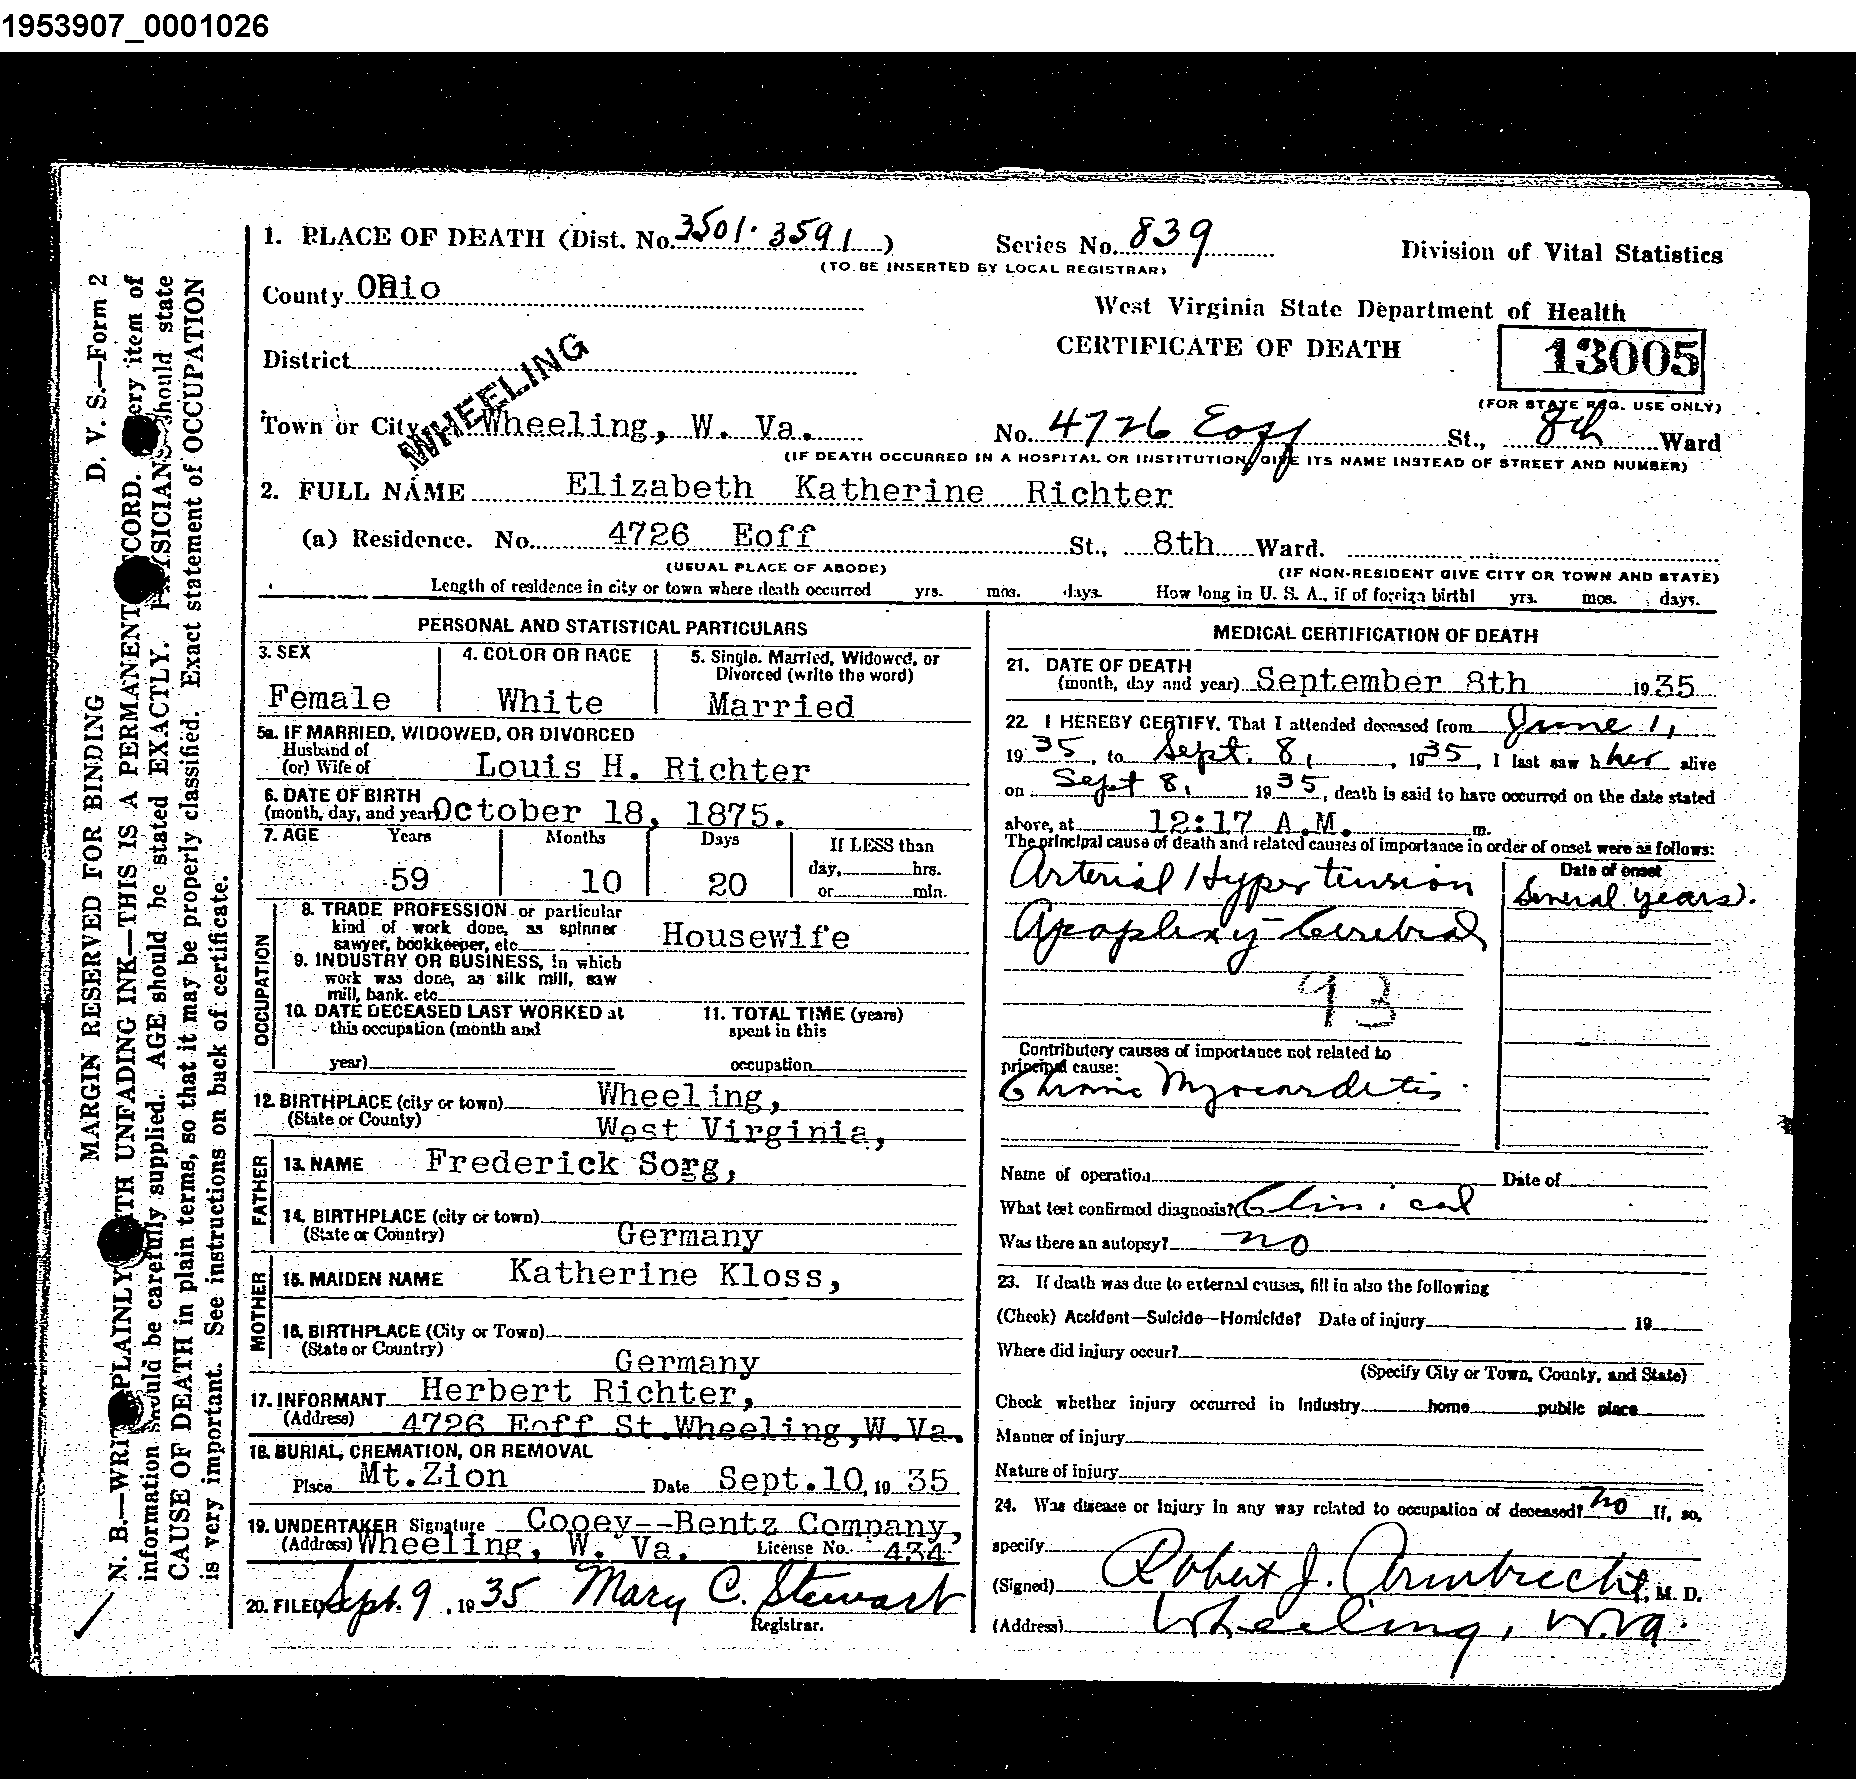 1953907_0001026
1. PLACE OF DEATH (Dist. No. 3501. 3591) Series No. 839 Division of Vital Statistics
(TO BE INSERTED BY LOCAL REGISTRAR)
County Ohio
West Virginia State Department of Health
CERTIFICATE OF DEATH 13005
District
WHEELING
(FOR STATE REG. USE ONLY)
Town or City Wheeling, W. Va. No. 4726 Eoff St., 8th Ward
(IF DEATH OCCURRED IN A HOSPITAL OR INSTITUTION, GIVE ITS NAME INSTEAD OF STREET AND NUMBER)
2. FULL NAME Elizabeth Katherine Richter
(a) Residence. No. 4726 Eoff St., 8th Ward.
(USUAL PLACE OF ABODE) (IF NON-RESIDENT GIVE CITY OR TOWN AND STATE)
Length of residence in city or town where death occurred yrs. mos. days. How long in U. S. A., if of foreign birth? yrs. mos. days.
PERSONAL AND STATISTICAL PARTICULARS
3. SEX 4. COLOR OR RACE 5. Single, Married, Widowed, or
Divorced (write the word)
Female White Married
5a. IF MARRIED, WIDOWED, OR DIVORCED
Husband of
(or) Wife of Louis H. Richter
6. DATE OF BIRTH
(month, day, and year) October 18, 1875.
7. AGE Years Months Days If LESS than
day, hrs.
59 10 20 or min.
OCCUPATION
8. TRADE PROFESSION or particular
kind of work done, as spinner
sawyer, bookkeeper, etc. Housewife
9. INDUSTRY OR BUSINESS, in which
work was done, as silk mill, saw
mill, bank. etc.
10. DATE DECEASED LAST WORKED at 11. TOTAL TIME (years)
this occupation (month and spent in this
year) occupation
12. BIRTHPLACE (city or town) Wheeling,
(State or County) West Virginia,
FATHER
13. NAME Frederick Sorg,
14. BIRTHPLACE (city or town)
(State or Country) Germany
MOTHER
15. MAIDEN NAME Katherine Kloss,
16. BIRTHPLACE (City or Town)
(State or Country) Germany
17. INFORMANT Herbert Richter,
(Address) 4726 Eoff St. Wheeling, W. Va.
18. BURIAL, CREMATION, OR REMOVAL
Place Mt. Zion Date Sept. 10, 19 35
19. UNDERTAKER Signature Cooey--Bentz Company,
(Address) Wheeling, W. Va. License No. 434
20. FILED Sept. 9, 1935 Mary C. Stewart
Registrar.
MEDICAL CERTIFICATION OF DEATH
21. DATE OF DEATH
(month, day and year) September 8th 1935
22. I HEREBY CERTIFY, That I attended deceased from June 1,
19 35, to Sept. 8, 1935, I last saw h her alive
on Sept 8, 1935, death is said to have occurred on the date stated
above, at 12:17 A.M. m.
The principal cause of death and related causes of importance in order of onset were as follows:
Date of onset
Arterial Hypertension Several years).
Apoplexy - Cerebral
93
Contributory causes of importance not related to
principal cause:
Chronic Myocarditis.
Name of operation Date of
What test confirmed diagnosis? Clinical
Was there an autopsy? no
23. If death was due to external causes, fill in also the following
(Check) Accident—Suicide—Homicide? Date of injury 19
Where did injury occur?
(Specify City or Town, County, and State)
Check whether injury occurred in Industry home public place
Manner of injury
Nature of injury
24. Was disease or injury in any way related to occupation of deceased? no If, so,
specify
(Signed) Robert J. Armbrecht, M. D.
(Address) Wheeling, W. Va.
D. V. S.—Form 2
MARGIN RESERVED FOR BINDING
N. B.—WRITE PLAINLY WITH UNFADING INK—THIS IS A PERMANENT RECORD. Every item of
information should be carefully supplied. AGE should be stated EXACTLY. PHYSICIANS should state
CAUSE OF DEATH in plain terms, so that it may be properly classified. Exact statement of OCCUPATION
is very important. See instructions on back of certificate.